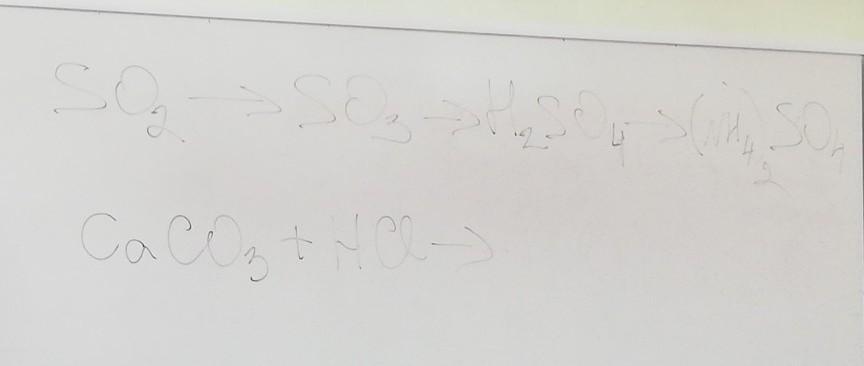 SO₂ → SO₃ → H₂SO₄ → (NH₄)₂SO₄
CaCO₃ + HCl →